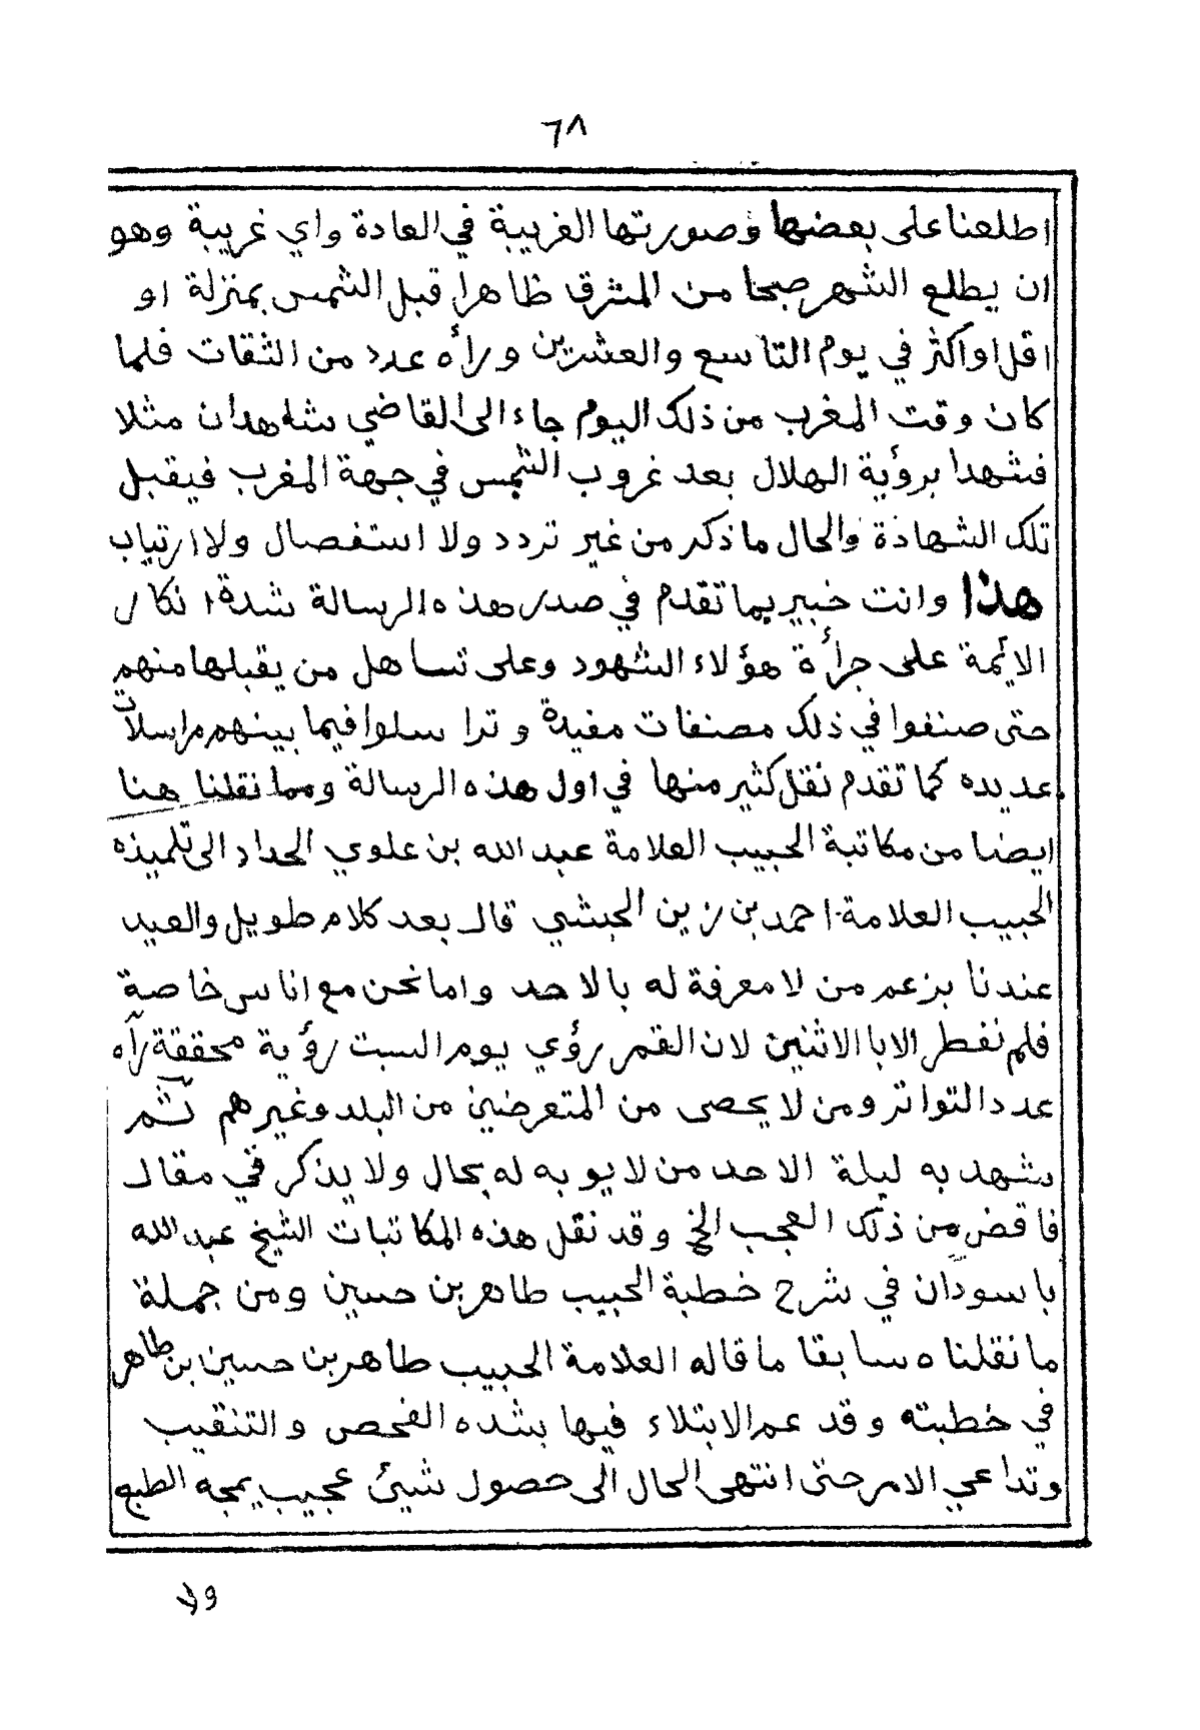 ٦٨
اطلعنا على بعضها وصورتها الغريبة في العادة واي غريبة وهو
ان يطلع الشهر صبحا من المشرق ظاهرا قبل الشمس بمنزلة او
اقل او اكثر في يوم التاسع والعشرين ورأه عدد من الثقات فلما
كان وقت المغرب من ذلك اليوم جاء الى القاضي شاهدان مثلا
فشهدا برؤية الهلال بعد غروب الشمس في جهة المغرب فيقبل
تلك الشهادة والحال ما ذكر من غير تردد ولا استفصال ولا ارتياب
هذا وانت خبير بما تقدم في صدر هذه الرسالة شدة انكار
الائمة على جرأة هؤلاء الشهود وعلى تساهل من يقبلها منهم
حتى صنفوا في ذلك مصنفات مفيدة وتراسلوا فيما بينهم مراسلات
عديده كما تقدم نقل كثير منها في اول هذه الرسالة ومما نقلنا هنا
ايضا من مكاتبة الحبيب العلامة عبد الله بن علوي الحداد الى تلميذه
الحبيب العلامة احمد بن زين الحبشي قال بعد كلام طويل والعيد
عندنا بزعم من لا معرفة له بالاحد واما نحن مع اناس خاصة
فلم نفطر الا بالاثنين لان القمر رؤي يوم السبت رؤية محققة رآه
عدد التواتر ومن لا يحصى من المتعرضين من البلد وغيرهم ثم
شهد به ليلة الاحد من لا يوبه له بحال ولا يذكر في مقال
فاقض من ذلك العجب الخ وقد نقل هذه المكاتبات الشيخ عبد الله
باسودان في شرح خطبة الحبيب طاهر بن حسين ومن جملة
ما نقلناه سابقا ما قاله العلامة الحبيب طاهر بن حسين بن طاهر
في خطبته وقد عم الابتلاء فيها بشده الفحص والتنقيب
وتداعي الامر حتى انتهى الحال الى حصول شيئ عجيب يمجه الطبع
ولا